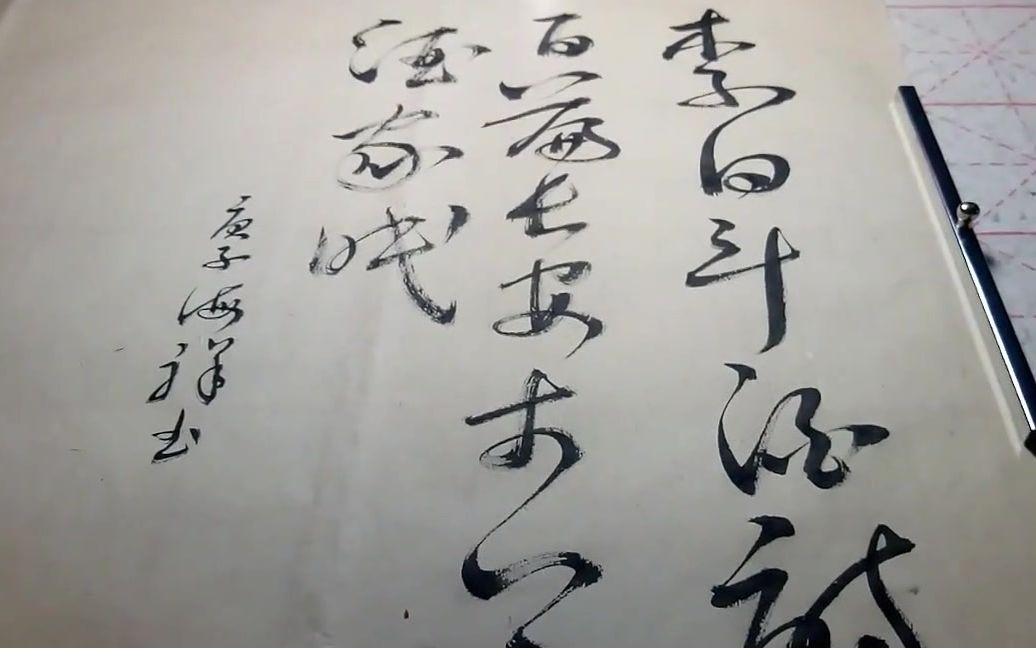 李白斗酒诗
百篇长安市上
酒家眠
庚子海祥书